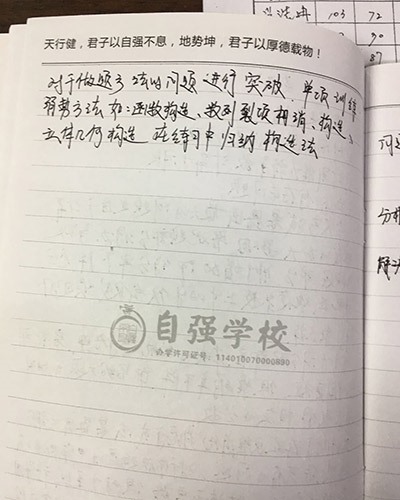 洪坤 103 72
90
87
天行健，君子以自强不息，地势坤，君子以厚德载物！
对于做题方法的问题进行突破 单项训练
弱势方法如：函数构造、数列裂项相消、构造、
立体几何构造 在练习中归纳构造法
问
分
自强学校
办学许可证号：114010070000890